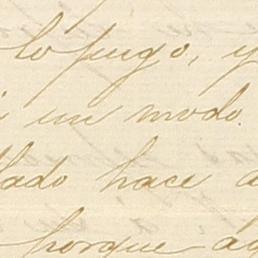 lo pingo, y
un modo
lado hace a
porque